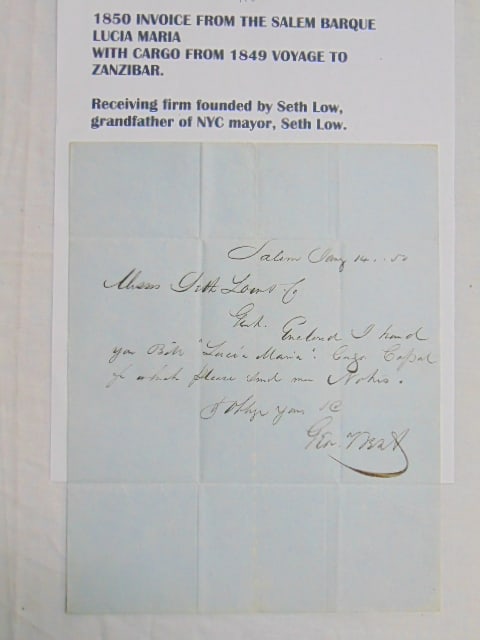 1850 INVOICE FROM THE SALEM BARQUE
LUCIA MARIA
WITH CARGO FROM 1849 VOYAGE TO
ZANZIBAR.
Receiving firm founded by Seth Low,
grandfather of NYC mayor, Seth Low.
Salem Jany 14. 50
Messrs Seth Lows & Co
Gent. Enclosed I hand
you Bill "Lucia Maria". Cargo Copal
of which please send me Notes.
& Oblige Yours
Geo. West